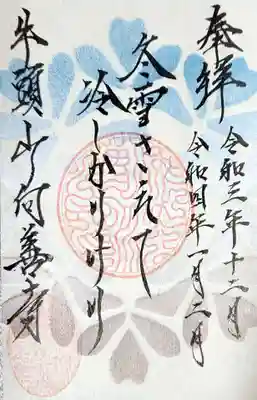 奉拝
令和三年十二月
令和四年一月二月
冬雪さえて
冷しかりけり
牛頭山付善寺